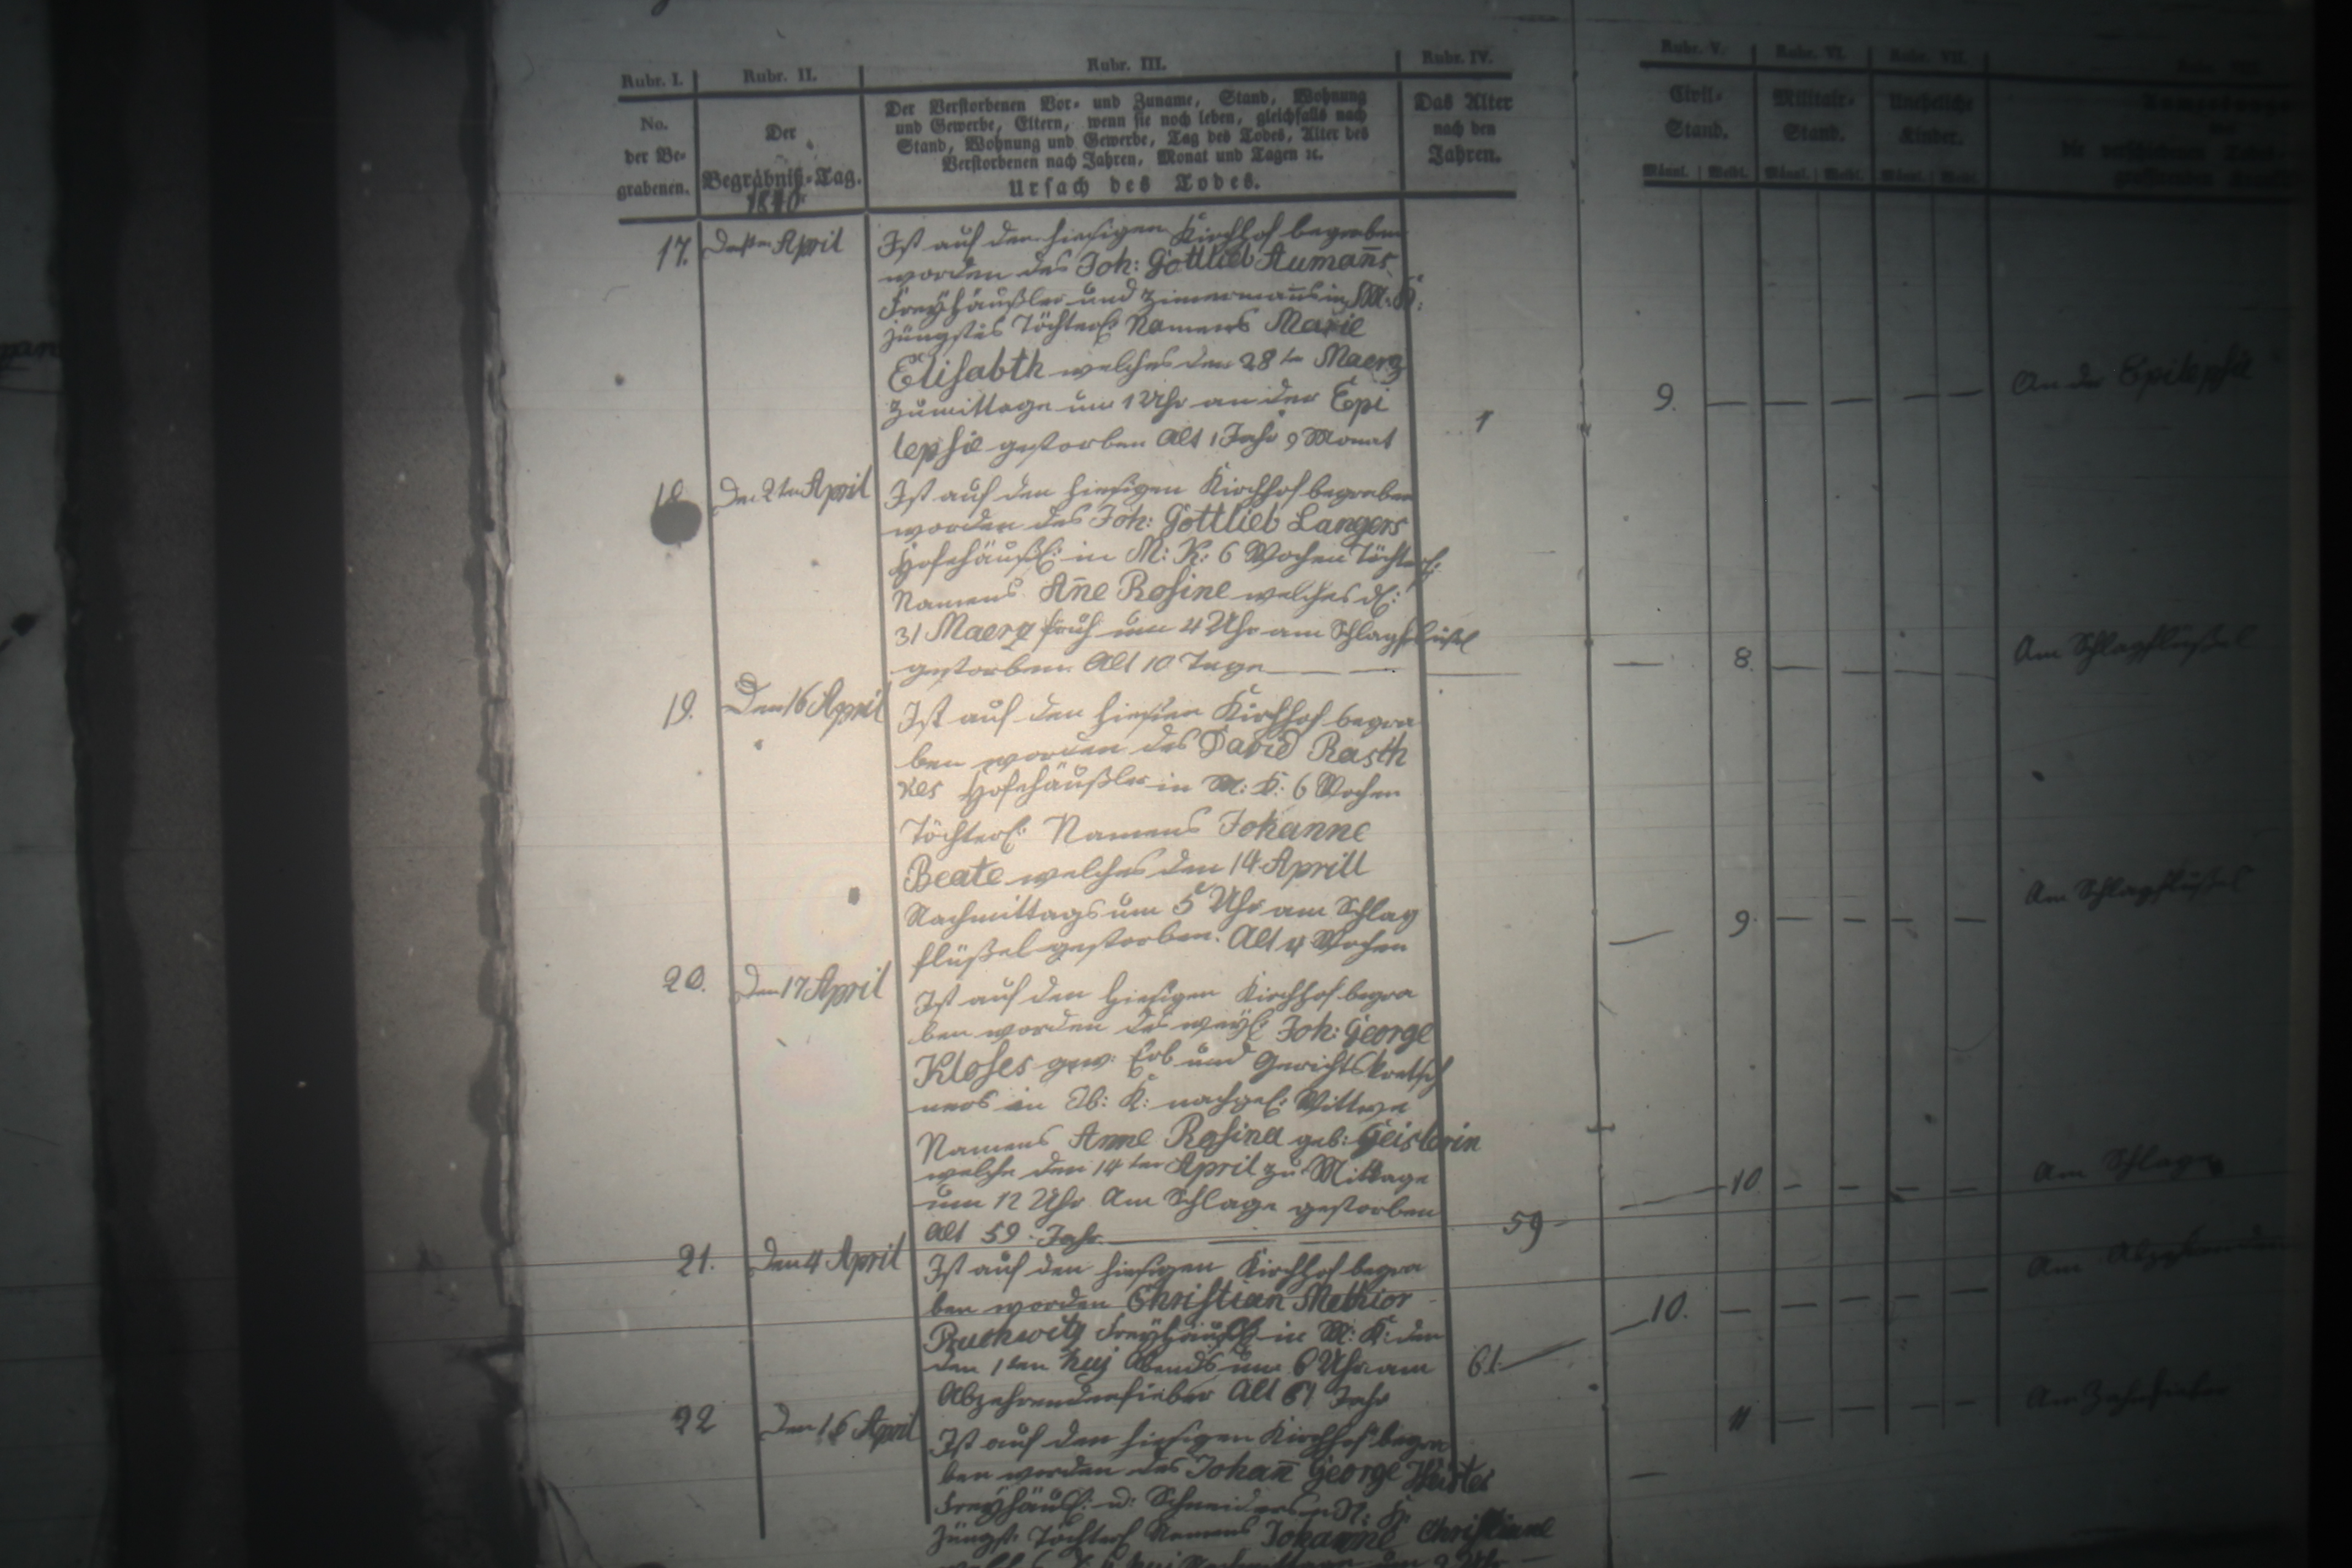 Rubr. I.
Rubr. II.
Rubr. III.
Rubr. IV.
Rubr. V.
Rubr. VI.
Rubr. VII.
No.
der Be-
grabenen.
Der
Begräbniß-Tag.
1840
Der Verstorbenen Vor- und Zuname, Stand, Wohnung
und Gewerbe, Eltern, wenn sie noch leben, gleichfalls nach
Stand, Wohnung und Gewerbe, Tag des Todes, Alter des
Verstorbenen nach Jahren, Monat und Tagen ꝛc.
Ursach des Todes.
Das Alter
nach den
Jahren.
Civil-
Stand.
Militair-
Stand.
Uneheliche
Kinder.
Männl. Weibl. Männl. Weibl. Männl. Weibl.
17. April
Ist auf den hiesigen Kirchhof begraben
worden des Joh: Gottlieb Aumañs
Freyhäußler und Zimermañs in M: K:
jüngstes Töchterl: Namens Marie
Elisabth welches den 28ten Maerz
zumittage um 1 Uhr an der Epi
lepsie gestorben Alt 1 Jahr 9 Monat
1
9.
An der Epilepsie
18 Den 2ten April
Ist auf den hiesigen Kirchhof begraben
worden des Joh: Gottlieb Langers
Hofehäußl: in M: K: 6 Wochen Töchterl:
Namens Añe Rosine welches d:
31 Maerz früh um 4 Uhr am Schlagflüßel
gestorben Alt 10 Tage
8.
Am Schlagflüßel
19. Den 16 April
Ist auf den hiesien Kirchhof begra
ben worden des David Rasth
kes Hofehäußler in M: K: 6 Wochen
Töchterl: Namens Johanne
Beate welches den 14 Aprill
Nachmittags um 5 Uhr am Schlag
flüßel gestorben. Alt 4 Wochen
9
Am Schlagflüßel
20. Den 17 April
Ist auf den hiesigen Kirchhof begra
ben worden des weyl: Joh: George
Kloses gew: Erb und Gerichtskretsch
mers in Ob: K: nachgel: Wittwe
Namens Anne Rosina geb: Geislerin
welche den 14ten April zu Mittage
um 12 Uhr Am Schlage gestorben
Alt 59 Jahr
59
10
Am Schlage
21. Den 4 April
Ist auf den hiesigen Kirchhof begra
ben worden Christian Melchior
Pruskwitz Freyhäußl in M: K: der
den 1ten huj Abends um 6 Uhr am
Abzehrendenfieber Alt 61 Jahr
61
10.
Am
22 Den 16 April
Ist auf den hiesigen Kirchhof begra
ben worden des Johañ George
Freyhäusl: u: Schneiders in N: K:
jüngst. Töchterl Namens Johanne Christiane
11
Am Zahnfieber